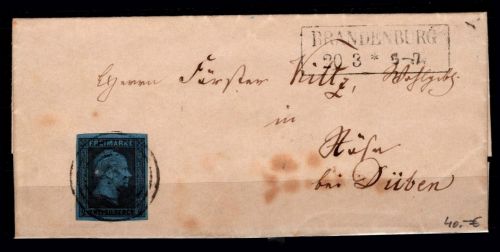 BRANDENBURG
20 3 * 5-7.
Herrn Förster Wohlgeb.
in
bei Düben
FREIMARKE
SILBERGR.
40.-€